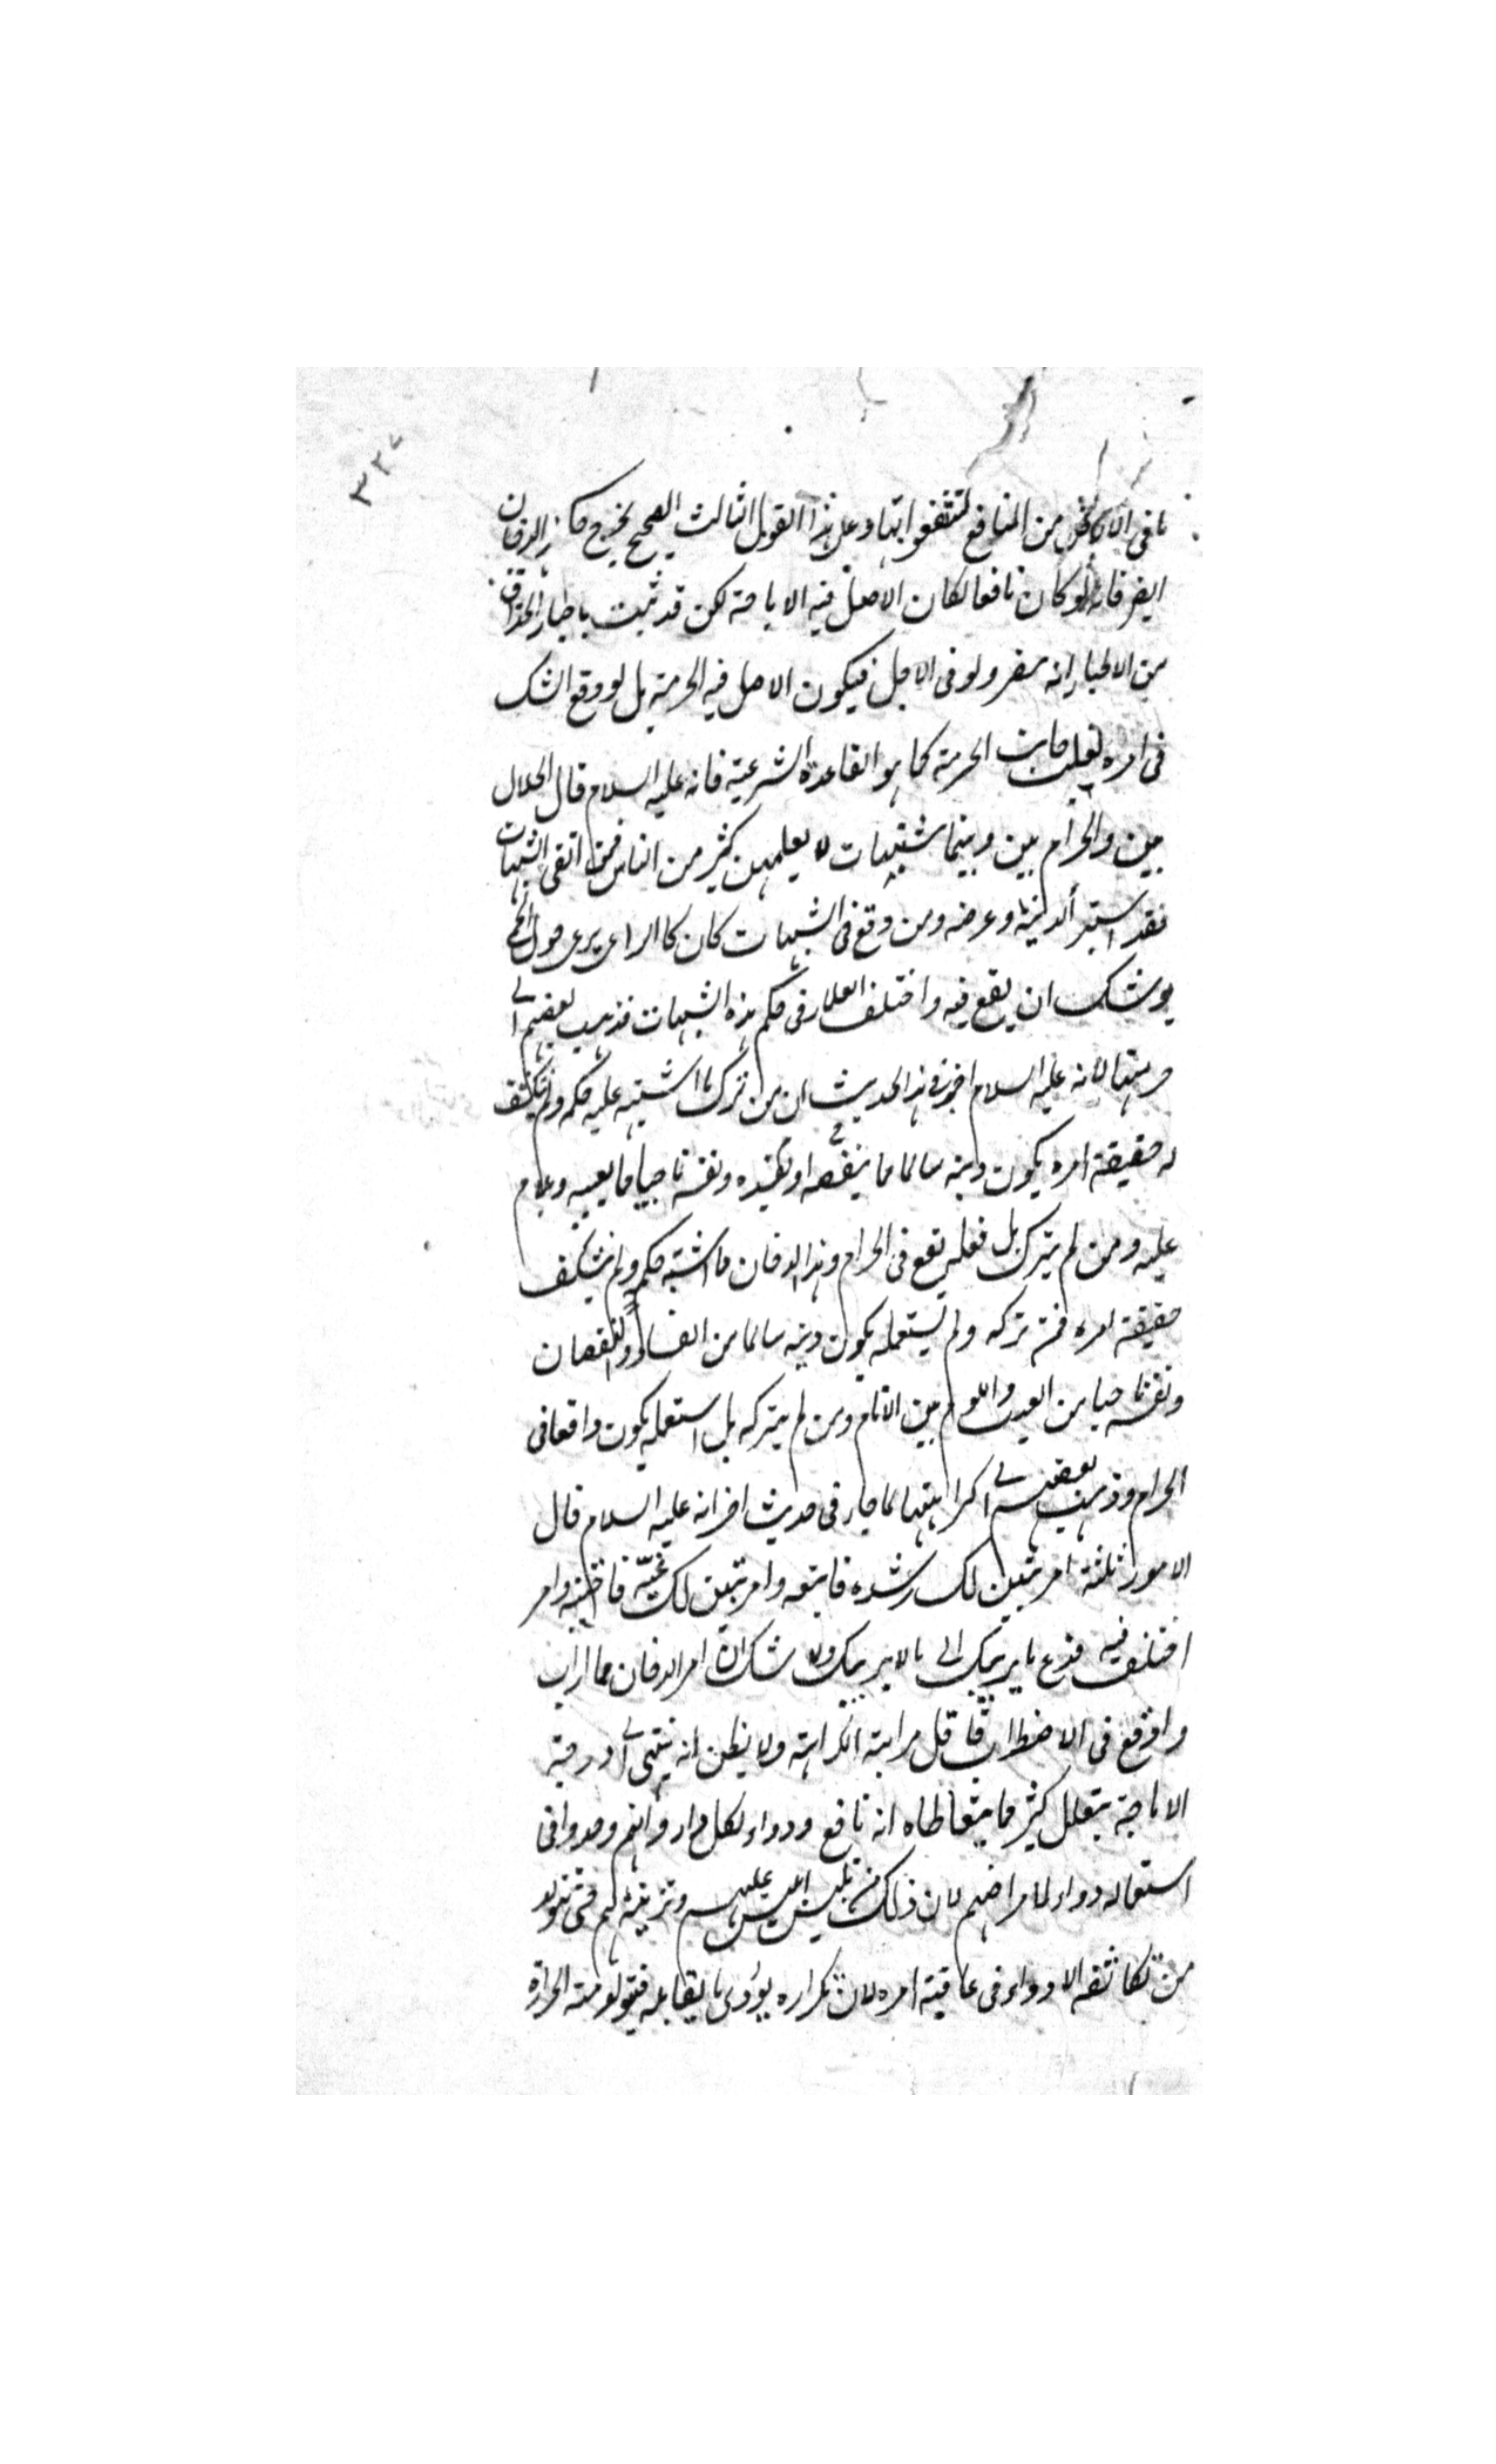 ٣٢٧
ما فى الارض من المنافع لتنتفعوا بها وعلى هذا القول الثالث الصحيح يخرج حكم الدخان
ايضا فانه لو كان نافعا لكان الاصل فيه الاباحة لكن قد ثبت باخبار الحذاق
من الاطباء انه مضر ولو فى الاجل فيكون الاصل فيه الحرمة بل لو وقع الشك
فى امره لغلب جانب الحرمة كما هو القاعدة الشرعية فانه عليه السلام قال الحلال
بين والحرام بين وبينهما مشتبهات لا يعلمهن كثير من الناس فمن اتقى الشبهات
فقد استبرأ لدينه وعرضه ومن وقع فى الشبهات كان كالراعى يرعى حول الحمى
يوشك ان يقع فيه واختلف العلماء فى حكم هذه الشبهات فذهب بعضهم الى
حرمتها لانه عليه السلام اخبر فى هذا الحديث ان من ترك ما اشتبه عليه حكمه ولم ينكشف
له حقيقة امره يكون دينه سالما مما ينقصه او يفسده ونفسه ناجيا مما يعيبه ويلام
عليه ومن لم يترك بل فعله يقع فى الحرام وهذا الدخان مما اشتبه حكمه ولم ينكشف
حقيقة امره فمن تركه ولم يستعمله يكون دينه سالما من الفساد والنقصان
ونفسه ناجيا من العيب واللوم بين الانام ومن لم يتركه بل استعمله يكون واقعا فى
الحرام وذهب بعضهم الى كراهتها لما جاء فى حديث اخر انه عليه السلام قال
الامور ثلثة امر تبين لك رشده فاتبعه وامر تبين لك غيه فاجتنبه وامر
اختلف فيه فدع ما يريبك الى ما لا يريبك ولا شك ان امر الدخان مما اراب
واوقع فى الاضطراب فاقل مراتبه الكراهة ولا يظن انه ينتهى الى درجة
الاباحة بتعلل كثير مما يتعاطاه انه نافع ودواء لكل داء وانهم وجدوا فى
استعماله دواء لامراضهم لان ذلك من تلبيس ابليس عليهم وتزيينه لهم حتى يتولد
من تكاثفه الادواء فى عاقبة امره لان تكراره يؤدى ما يقابله فيتولد منه الحرارة